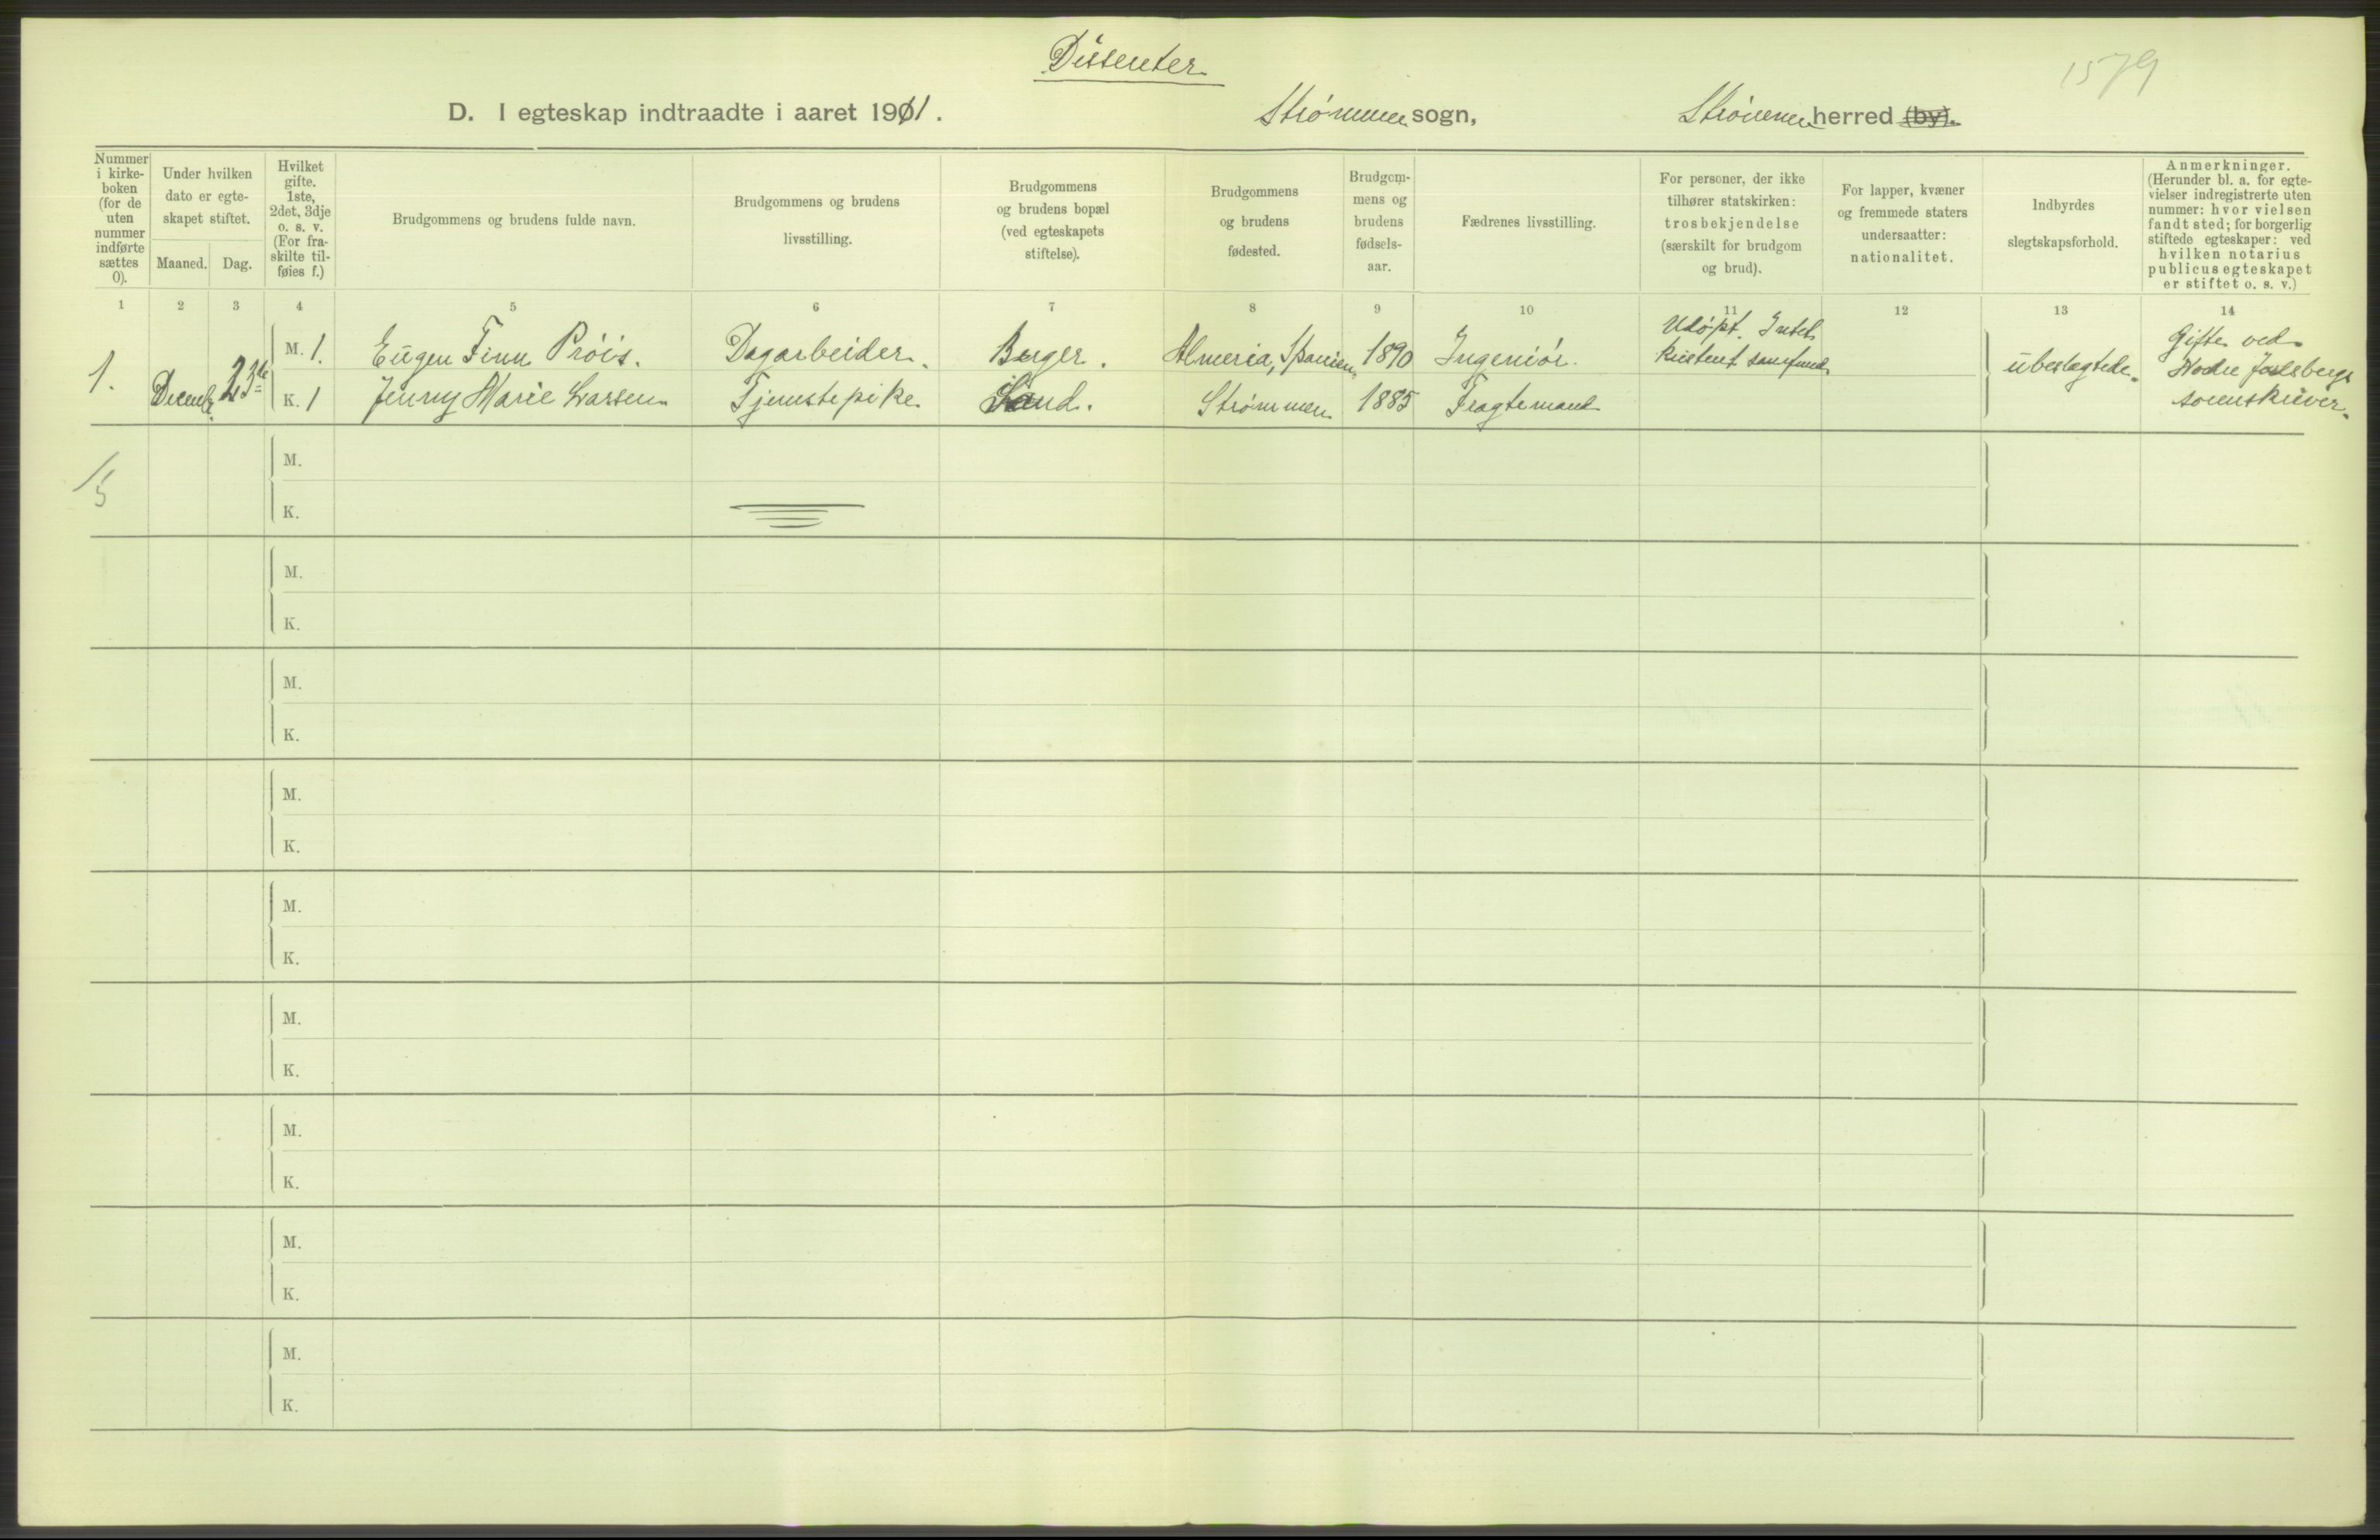 Dissenter
1579
D. I egteskap indtraadte i aaret 1911. Strømmen sogn, Strømmen herred (by).
Nummer i kirke-boken (for de uten nummer indførte sættes 0).
Under hvilken dato er egte-skapet stiftet.
Maaned. Dag.
Hvilket gifte. 1ste, 2det, 3dje o. s. v. (For fra-skilte til-føies f.)
Brudgommens og brudens fulde navn.
Brudgommens og brudens livsstilling.
Brudgommens og brudens bopæl (ved egteskapets stiftelse).
Brudgommens og brudens fødested.
Brudgom-mens og brudens fødsels-aar.
Fædrenes livsstilling.
For personer, der ikke tilhører statskirken: trosbekjendelse (særskilt for brudgom og brud).
For lapper, kvæner og fremmede staters undersaatter: nationalitet.
Indbyrdes slegtskapsforhold.
Anmerkninger. (Herunder bl. a. for egte-vielser indregistrerte uten nummer: hvor vielsen fandt sted; for borgerlig stiftede egteskaper: ved hvilken notarius publicus egteskapet er stiftet o. s. v.)
1 2 3 4 5 6 7 8 9 10 11 12 13 14
1. Decemb. 23de
M. 1. Eugen Finn Prøis. Dagarbeider. Berger. Almeria, Spanien. 1890 Ingeniør. Udøpt. Intet kristent samfund.
K. 1 Jenny Marie Larsen Tjenstepike. Sand. Strømmen 1885 Fragtemand
ubeslegtede.
Gifte ved
Nordre Jarlsbergs
sorenskriver.
1/5
M.
K.
M.
K.
M.
K.
M.
K.
M.
K.
M.
K.
M.
K.
M.
K.
M.
K.